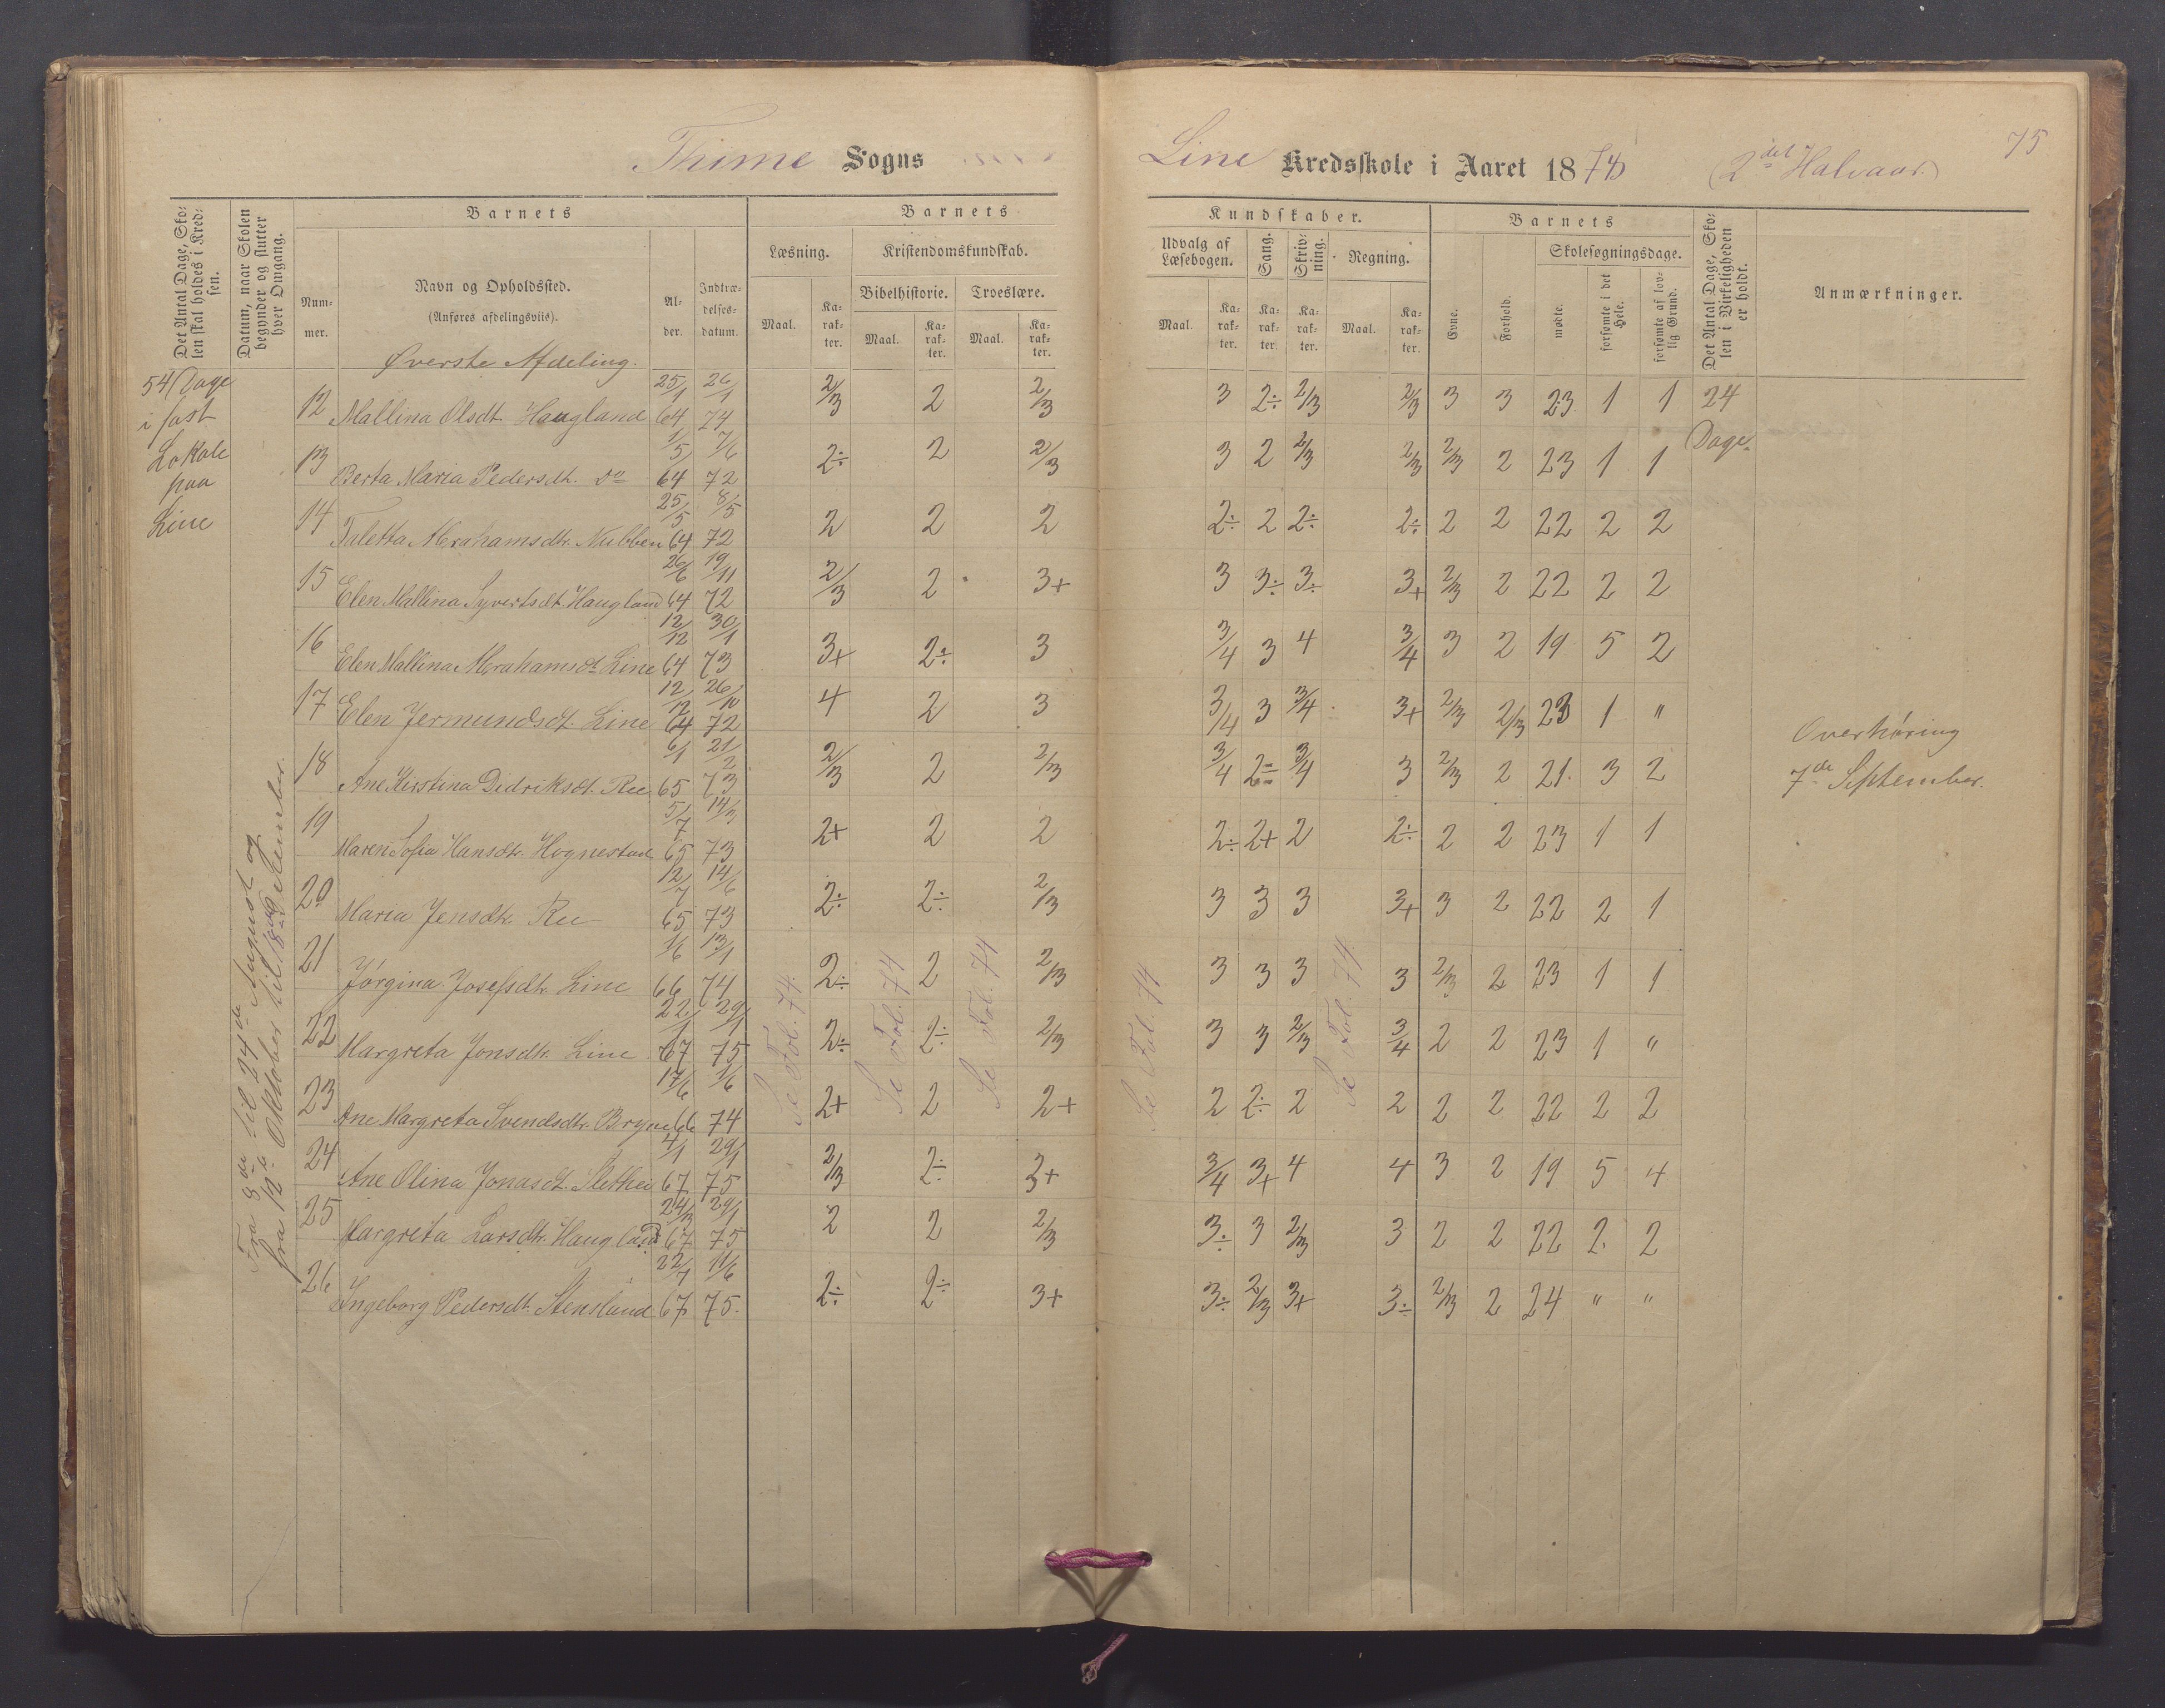 Thime Sogns
Line Kredsskole i Aaret 187 (2det Halvaar.)
75
Det Antal Dage, Skolen skal holdes i Kredsen.
Datum, naar Skolen begynder og slutter hver Omgang.
Barnets
Nummer.
Navn og Opholdssted.
(Anføres afdelingsviis).
Alder.
Indtrædelsesdatum.
Barnets
Læsning.
Kristendomskundskab.
Maal.
Karakter.
Bibelhistorie.
Troeslære.
Maal.
Karakter.
Maal.
Karakter.
Kundskaber.
Udvalg af Læsebogen.
Sang.
Skrivning.
Regning.
Maal.
Karakter.
Karakter.
Karakter.
Maal.
Karakter.
Barnets
Evne.
Forhold.
Skolesøgningsdage.
mødte.
forsømte i det Hele.
forsømte af lovlig Grund.
Det Antal Dage, Skolen i Virkeligheden er holdt.
Anmærkninger.
Øverste Afdeling.
54 Dage
i fast
Lokale
paa
Line
Fra 8de til 24de August og
fra 12te Oktober til 18de Dekember.
12 Mallina Olsdt. Haugland 25/1 64 26/1 74 2/3 2 2/3 3 2÷ 2/3 2/3 3 3 23 1 1 24
13 Berta Maria Pedersdt. do 1/5 64 7/6 72 2÷ 2 2/3 3 2 2/3 2/3 2/3 2 23 1 1 Dage.
14 Taletta Abrahamsdtr. Nubben 25/5 64 8/5 72 2 2 2 2÷ 2 2÷ 2÷ 2 2 22 2 2
15 Elen Mallina Syvertsdt. Haugland 26/6 64 19/11 72 2/3 2 3+ 3 3÷ 3÷ 3+ 2/3 2 22 2 2
16 Elen Mallina Abrahamsdt. Line 12/12 64 30/1 73 3+ 2÷ 3 3/4 3 4 3/4 3 2 19 5 2
17 Elen Jermundsdt. Line 12/12 64 26/10 72 4 2 3 3/4 3 3/4 3+ 2/3 2/3 23 1 "
18 Ane Kirstina Didriksdt. Ree 6/1 65 21/2 73 2/3 2 2/3 3/4 2÷ 3/4 3 2/3 2 21 3 2
19 Maren Sofia Hansdtr. Hognestad 5/7 65 14/3 73 2+ 2 2 2÷ 2+ 2 2÷ 2 2 23 1 1
20 Maria Jensdtr Ree 12/7 65 14/6 73 2÷ 2÷ 2/3 3 3 3 3+ 3 2 22 2 1
21 Jørgina Josefsdtr. Line 1/6 66 13/1 74 2÷ 2 2/3 3 3 3 3 2/3 2 23 1 1
22 Margreta Jonsdtr. Line 22/1 67 29/1 75 2÷ 2÷ 2/3 3 3 2/3 3/4 2 2 23 1 "
23 Ane Margreta Svendsdtr. Bryne 17/6 66 1/6 74 2+ 2 2+ 2 2÷ 2 2 2 2 22 2 2
24 Ane Olina Jonasdt. 4/1 67 29/1 75 2/3 2÷ 3+ 3/4 3+ 4 4 3 2 19 5 4
25 Margreta Larsdtr. Haugland 24/3 67 29/1 75 2 2 2/3 3÷ 3 2/3 3 2 2 22 2 2
26 Ingeborg Pedersdt. Stensland 22/7 67 11/6 75. 2÷ 2÷ 3+ 3÷ 2/3 3+ 3÷ 2/3 2 24 " "
Se Fol. 74.
Se Fol. 74
Se Fol. 74
Se Fol. 74
Se Fol. 74.
Overhøring
7de September.